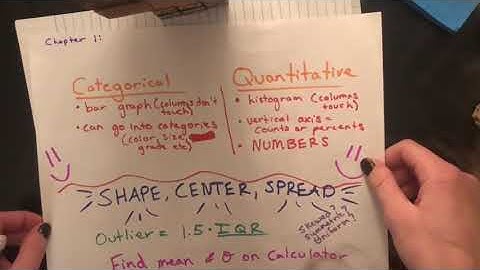 Chapter 1:
Categorical
• bar graph (columns don't touch)
• can go into categories (color, size, grade etc)
Quantitative
• histogram (columns touch)
• vertical axis = counts or percents
• NUMBERS
SHAPE, CENTER, SPREAD
skewed?
symmetric?
Uniform?
Outlier = 1.5 · IQR
Find mean & σ on Calculator